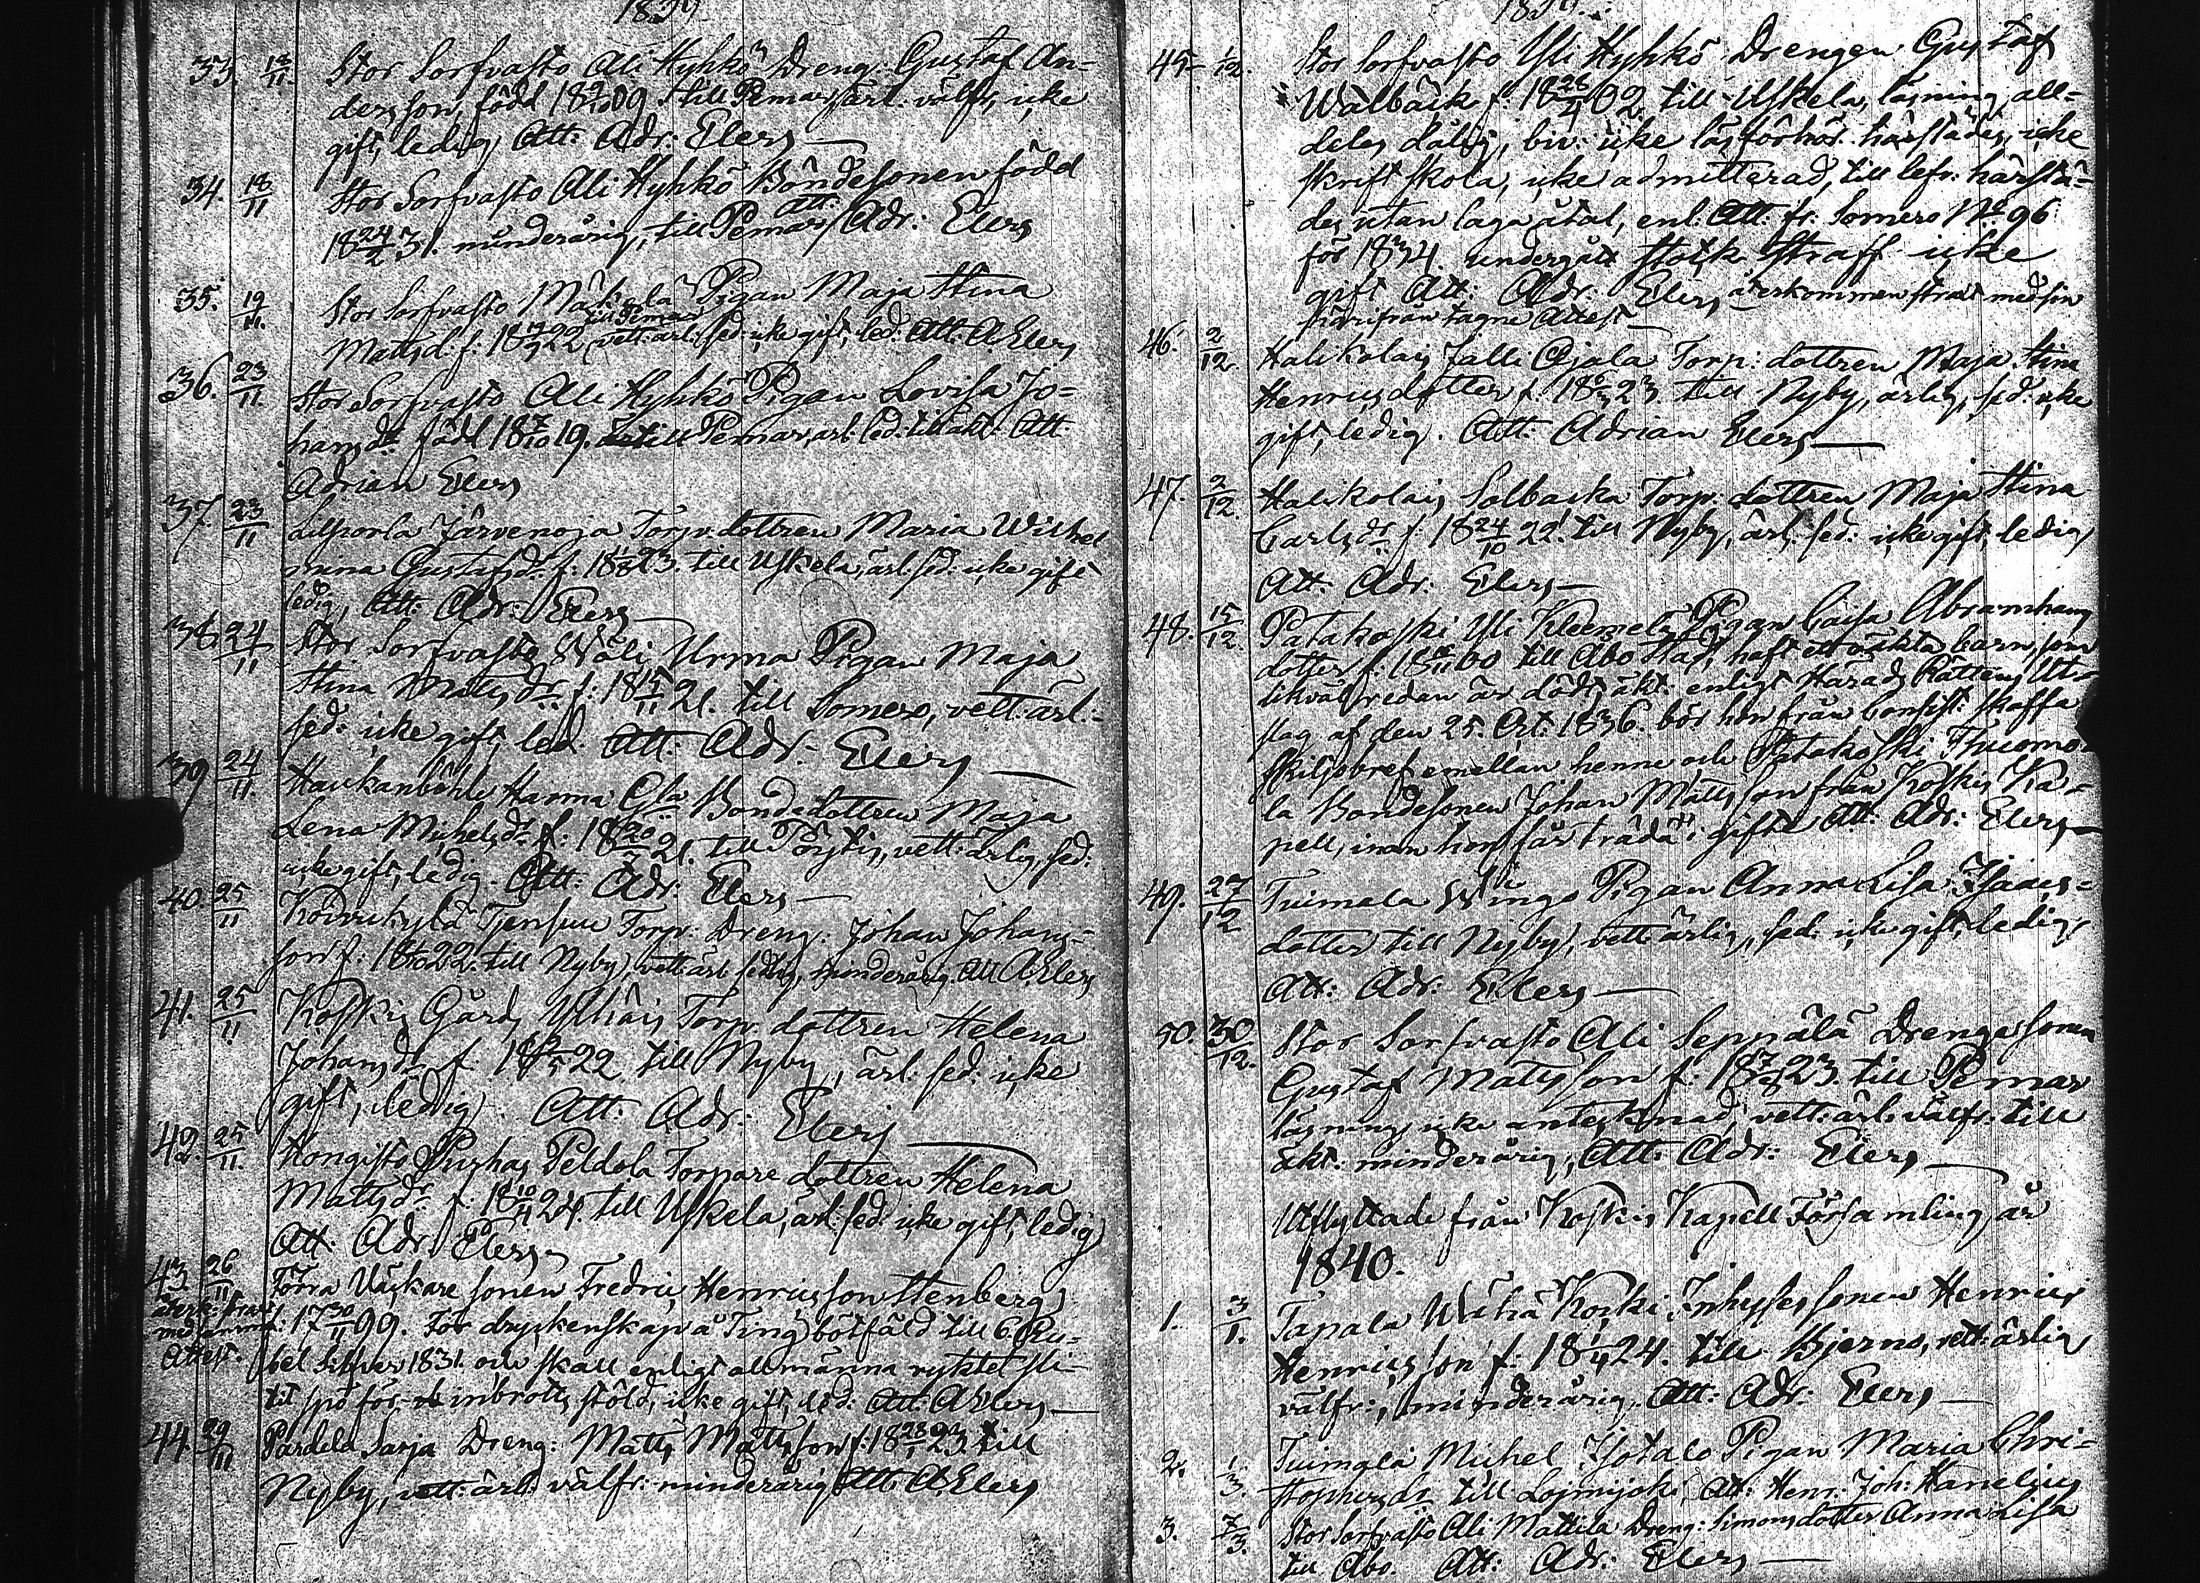 1839.
33. 18/11 Stor Sorfvasto Ali Hyhkö Dreng: Gustaf An=
dersson, född 18 9/10 09 till Pemar, ärl: välfr, icke
gift, ledig, Att: Adr: Elers
34. 18/11 Stor Sorfvasto Ali Hyhkö Bondesonen född
18 24/2 31. minderårig, till Pemar, att: Adr: Elers
35. 19/11. Stor Sorfvasto Mäkelä Pigan Maja Stina
Matsd: f: 18 19/9 22 till Pemar vett: ärl: sed: icke gift, led: Att: A. Elers
36. 23/11. Stor Sorfvasto Ali Hyhkö Pigan Lovisa Jo=
hansdr: född 18 7/10 19. till Pemar, ärl: led: till äkt: Att:
Adrian Elers
37. 23/11 Liiporla Järvenoja Torp: dottren Maria Wilhel
mina Gustafsdr: f: 18 1/8 23. till Uskela, ärl: sed: icke gift
ledig, Att: Adr: Elers
38. 24/11 Stor Sorfvasto Wäli Urma Pigan Maja
Stina Matsdr: f: 18 15/11 21. till Somero, vett: ärl:
sed: icke gift, led: Att: Adr: Elers
39 24/11. Haukanböhle Hanna Gla Bondedottren Maja
Lena Michelsdr: f: 18 20/7 21. till Pöytis, vett: ärlig, sed:
icke gift, ledig. Att: Adr: Elers
40. 25/11 Koivukylä Torp: Dreng: Johan Johans=
son f: 18 22. till Nyby, vett: ärl: sedlig, minderårig. Att A. Elers
41. 25/11 Koskis Gårds Torp: dottren Helena
Johansdr: f: 18 22. till Nyby, ärl: sed: icke
gift, (ledig). Att: Adr: Elers
42. 25/11. Hongisto Purhas Peldola Torpare dottren Helena
Mattsdr: f: 18 10/4 24. till Uskela, ärl: sed: icke gift, ledig
Att: Adr: Elers
43. 26/11 Torra Väskare sonen Fredric Henricsson Stenberg
återk: strax med samma Attest. f: 17 30/11 99. För dryckenskap å Ting bötfäld till 6. Ru=
bel Silfver 1831. och skall enligt allmänna ryktet sli=
tit spö för inbrotts stöld, icke gift, led: Att: A Elers
44. 29/11 Pardela Sarja Dreng: Matts Mattsson f: 18 28/1 23 till
Nyby, vett: ärl: välfr: minderårig Att: A Elers
1839.
45. 1/12. Stor Sorfvasto Yli Hyhkö Drengen Gustaf
Wälbäck f: 18 28/4 02. till Uskela, läsning all=
deles dålig, biv: icke läsförhör härstädes, icke
skriftskola, icke admitterad, till lefv: härstä=
des utan laga åtal, enl: Att: fr: Somero No 96
för 1834 undergått straff icke
gift Att: Adr: Elers återkommen strax med sin
härifrån tagne Attest
46. 2/12. Halikolais Jalli Ojala Torp: dottren Maja Stina
Henricsdotter f: 18 23 till Nyby, ärlig, sed: icke
gift, ledig. Att: Adrian Elers
47. 2/12. Halikolais Solbacka Torp: dottren Maja Stina
Carlsdr: f: 18 24/10 22. till Nyby, ärl: sed: icke gift, ledig
Att: Adr: Elers
48. 15/12. Patakoski Yli Kleemela Pigan Caisa Abramhams
dotter f: 18 00 till Åbo Stad, haft ett oäkta barn, som
likväl redan är dödt, äkt: enligt Härads Rättens Ut=
slag af den 25. Oct: 1836. bör hon från Consist: skaffa
skiljobref emellan henne och Patakoski Thuomo=
la Bondesonen Johan Mattsson från Koskis Ka=
pell, innan hon får träda i gifte Att: Adr: Elers
49. 27/12 Tuimala Wingo Pigan Anna Lisa Isaacs=
dotter till Nyby, vett: ärlig, sed: icke gift, ledig,
Att: Adr: Elers
50. 30/12. Stor Sorfvasto Ali Seppälä Drengesonen
Gustaf Matsson f: 18 23. till Pemar
läsning icke antecknad, vett: ärl: välfr: till
äkt: minderårig, Att: Adr: Elers
Utflyttade från Koskis Kapell Församling år
1840.
1. 3/1. Tapala Wähä Koski Inhyses sonen Henric
Henricsson f: 18 1/4 24. till Bjerno, vett: ärlig
välfr:, minderårig. Att: Adr: Elers
2. 1/3. Tuimala Michel Isotalo Pigan Maria Chri=
stophersdr: till Loimijoki, Att: Henr: Joh: Hanelius
3. 7/3. Stor Sorfvasto Ali Mattila Dreng: Simonsdotter Anna Lisa
till Åbo. Att: Adr: Elers